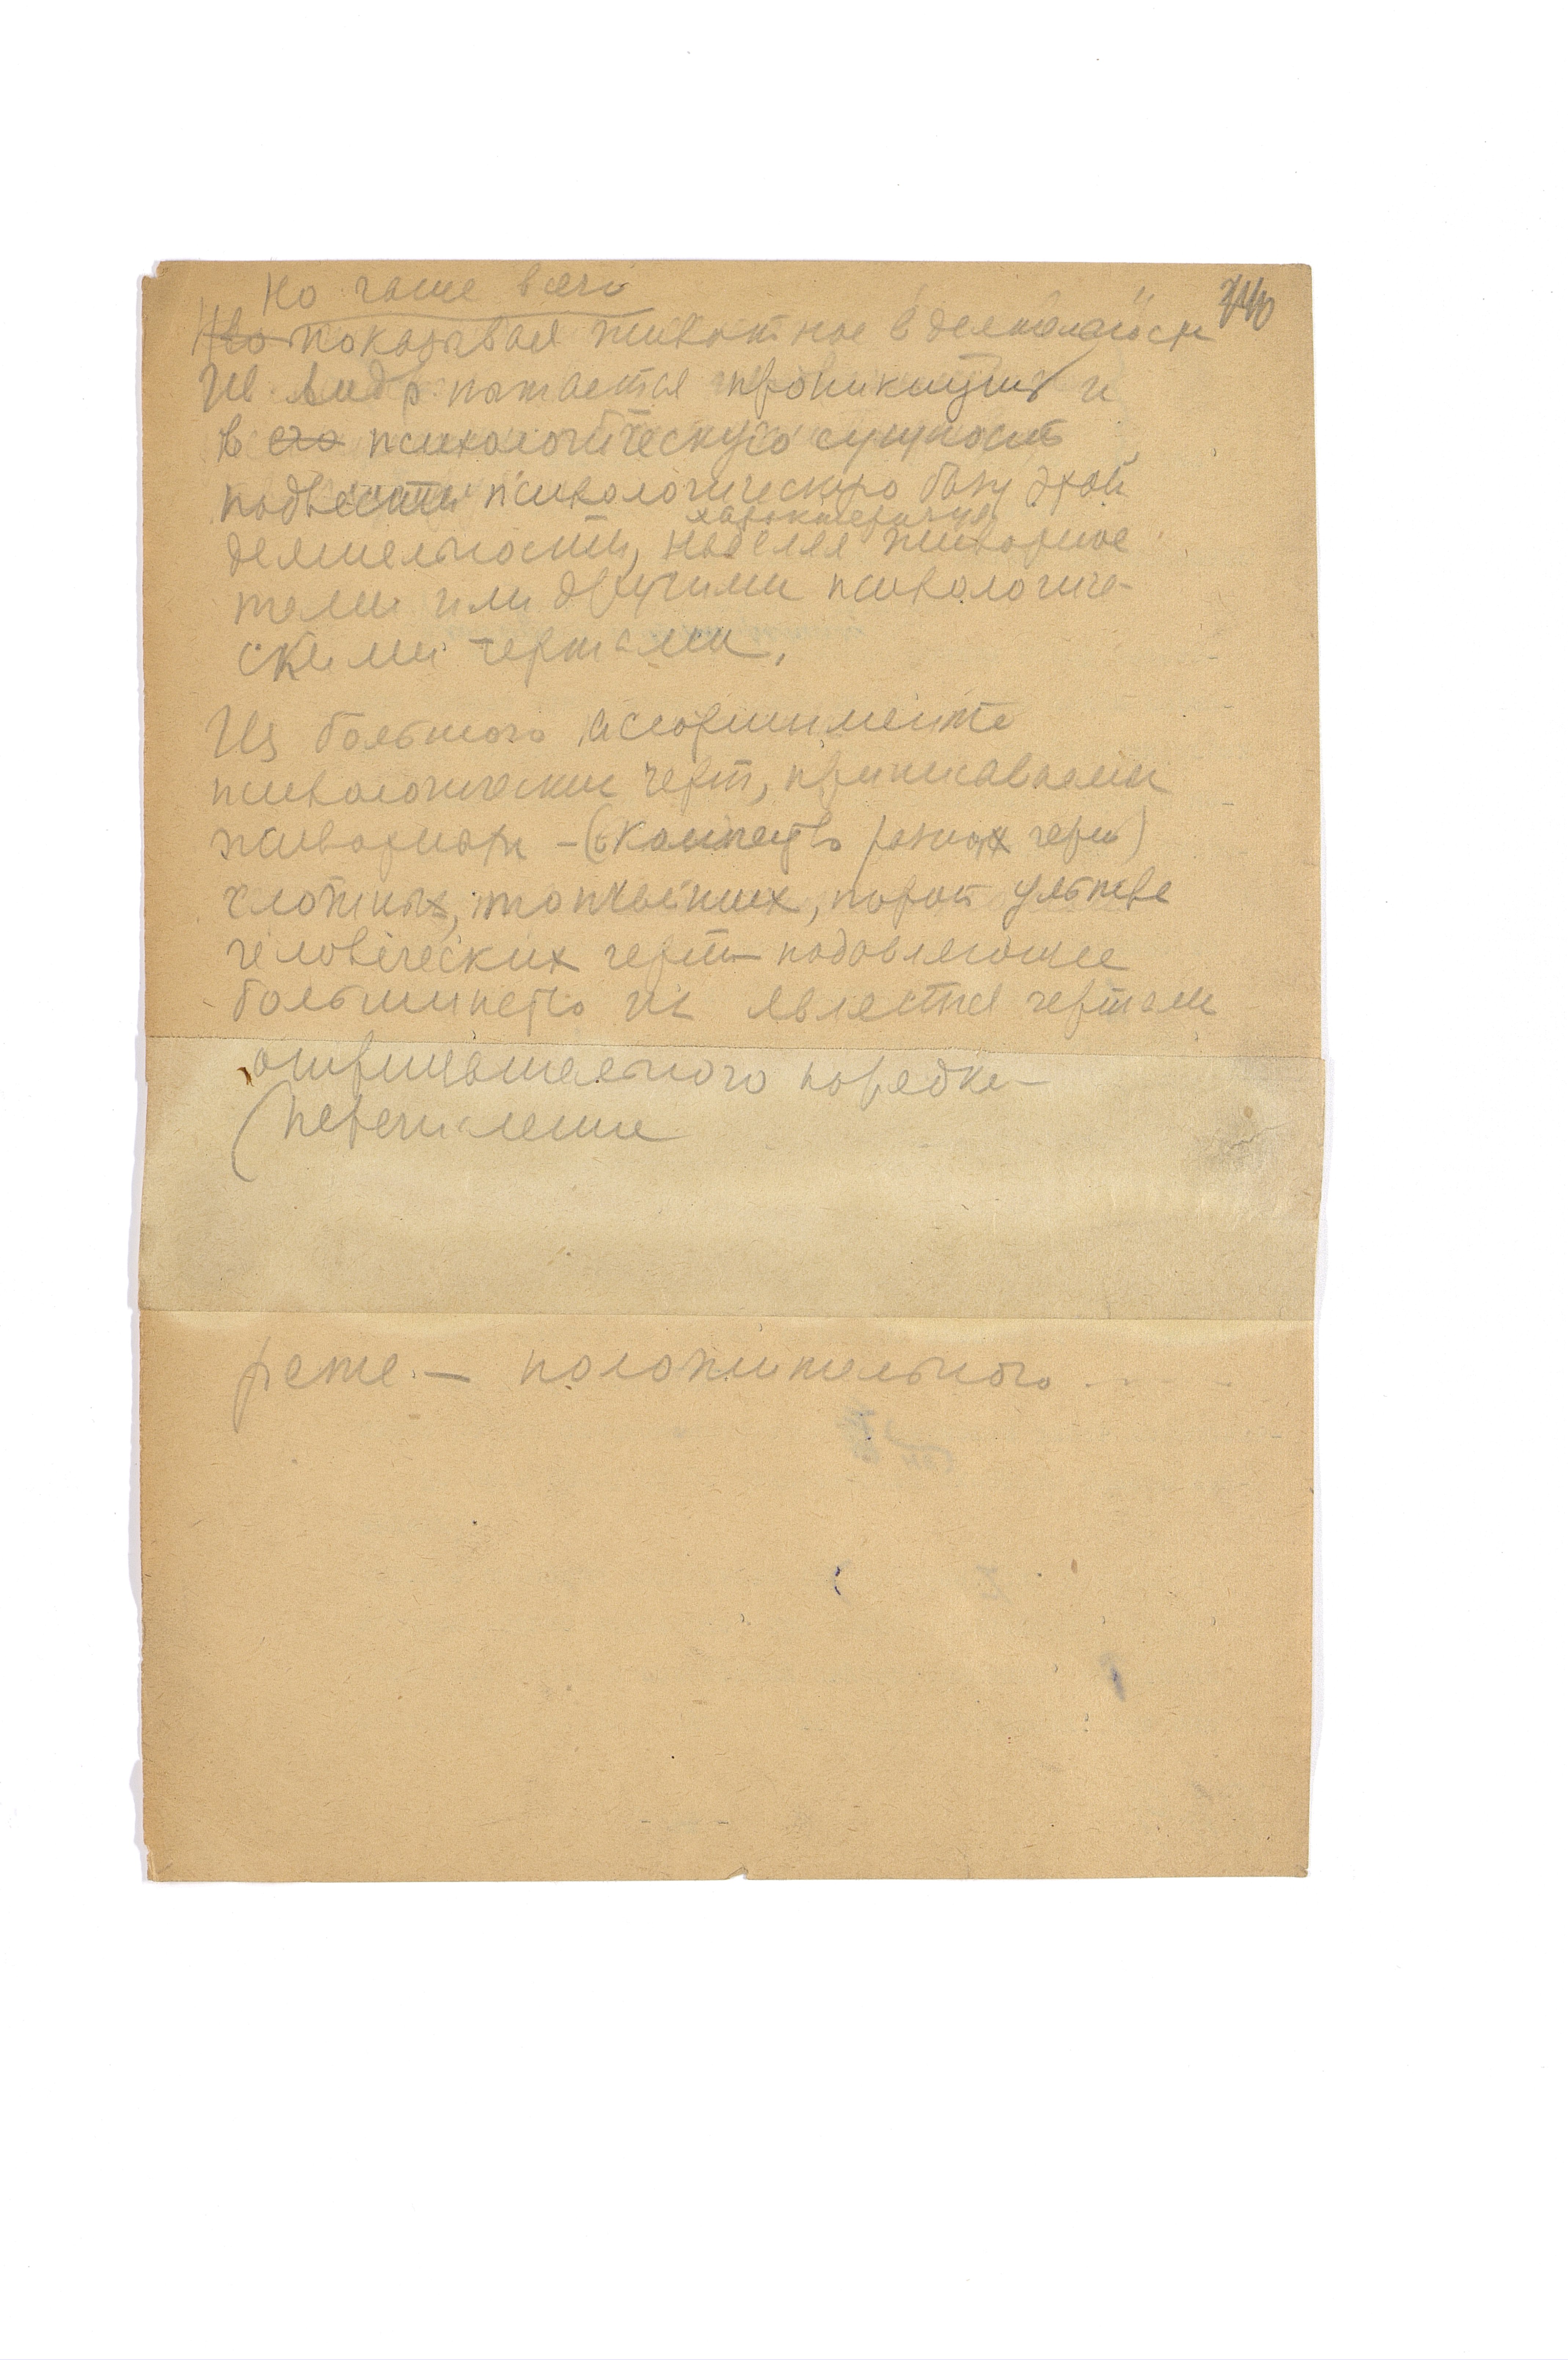 Но чаще всего
Но показывая животное в деятельности
Ив. Андр. пытается проникнуть и
в его психологическую сущность
подвести психологическую базу этой
характеризуя
деятельности, наделяя животное
теми или другими психологиче-
скими чертами.
Из большого ассортимента
психологических черт,
животным – ( разных черт)
человеческих черт – подавляющее
большинство их является чертами
отрицательного порядка –
(перечисление
реже – положительного - - - -